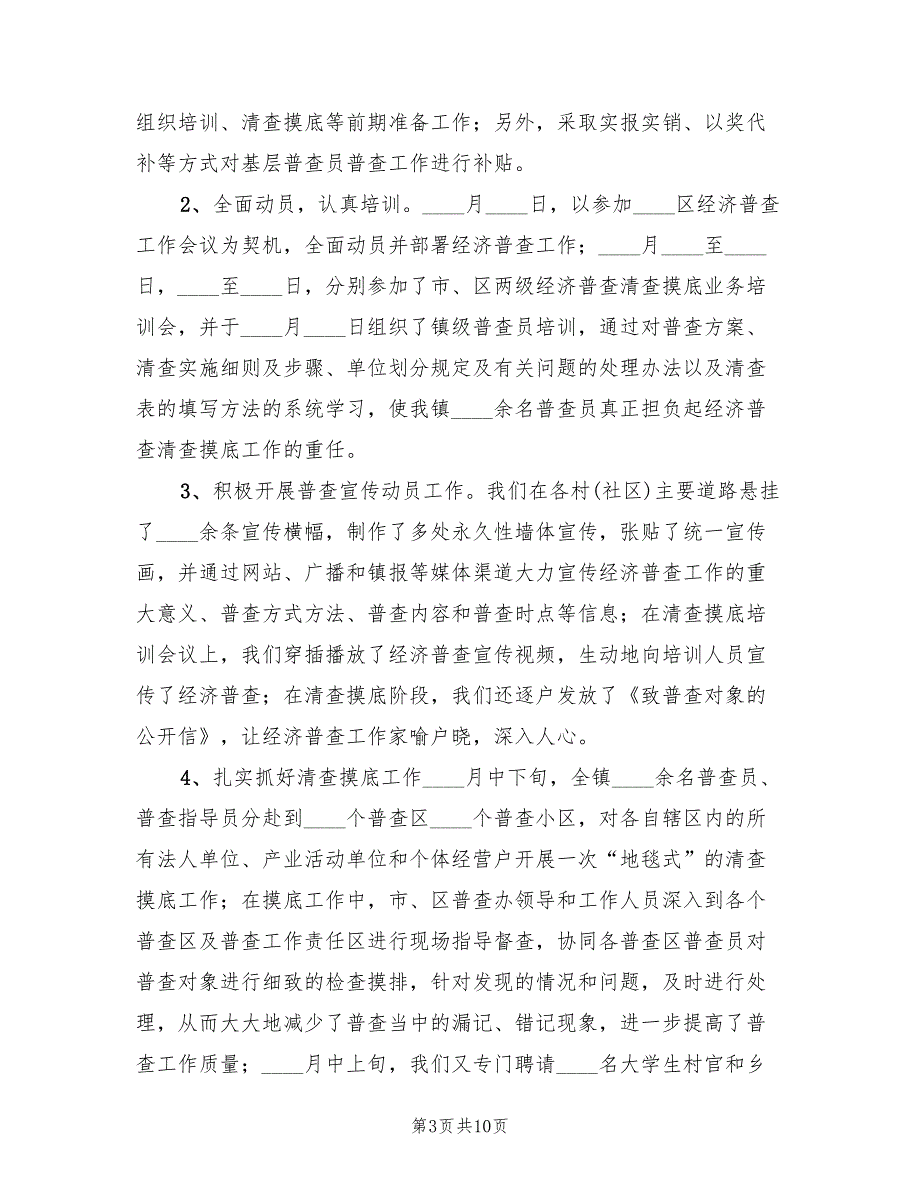 组织培训、清查摸底等前期准备工作；另外，采取实报实销、以奖代
补等方式对基层普查员普查工作进行补贴。
2、全面动员，认真培训。____月____日，以参加____区经济普查
工作会议为契机，全面动员并部署经济普查工作；____月____至____
日，____至____日，分别参加了市、区两级经济普查清查摸底业务培
训会，并于____月____日组织了镇级普查员培训，通过对普查方案、
清查实施细则及步骤、单位划分规定及有关问题的处理办法以及清查
表的填写方法的系统学习，使我镇____余名普查员真正担负起经济普
查清查摸底工作的重任。
3、积极开展普查宣传动员工作。我们在各村(社区)主要道路悬挂
了____余条宣传横幅，制作了多处永久性墙体宣传，张贴了统一宣传
画，并通过网站、广播和镇报等媒体渠道大力宣传经济普查工作的重
大意义、普查方式方法、普查内容和普查时点等信息；在清查摸底培
训会议上，我们穿插播放了经济普查宣传视频，生动地向培训人员宣
传了经济普查；在清查摸底阶段，我们还逐户发放了《致普查对象的
公开信》，让经济普查工作家喻户晓，深入人心。
4、扎实抓好清查摸底工作____月中下旬，全镇____余名普查员、
普查指导员分赴到____个普查区____个普查小区，对各自辖区内的所
有法人单位、产业活动单位和个体经营户开展一次“地毯式”的清查
摸底工作；在摸底工作中，市、区普查办领导和工作人员深入到各个
普查区及普查工作责任区进行现场指导督查，协同各普查区普查员对
普查对象进行细致的检查摸排，针对发现的情况和问题，及时进行处
理，从而大大地减少了普查当中的漏记、错记现象，进一步提高了普
查工作质量；____月中上旬，我们又专门聘请____名大学生村官和乡
第3页共10页